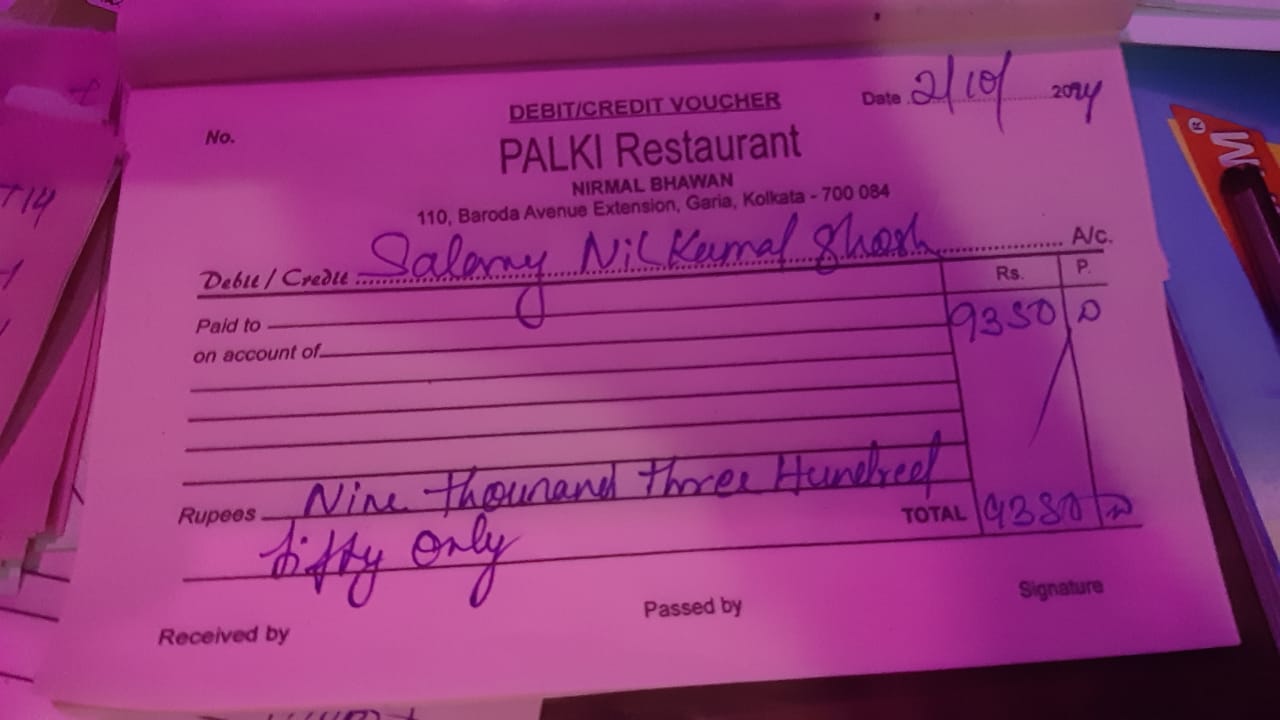 DEBIT/CREDIT VOUCHER
No.
Date 2/10/ 2024
PALKI Restaurant
NIRMAL BHAWAN
110, Baroda Avenue Extension, Garia, Kolkata - 700 084
Debit / Credit Salary Nil Kamal Ghosh A/c.
Rs. P.
Paid to
9350
on account of
Rupees Nine thousand three Hundred
TOTAL 9350
fifty Only
Received by
Passed by
Signature
+14
M®